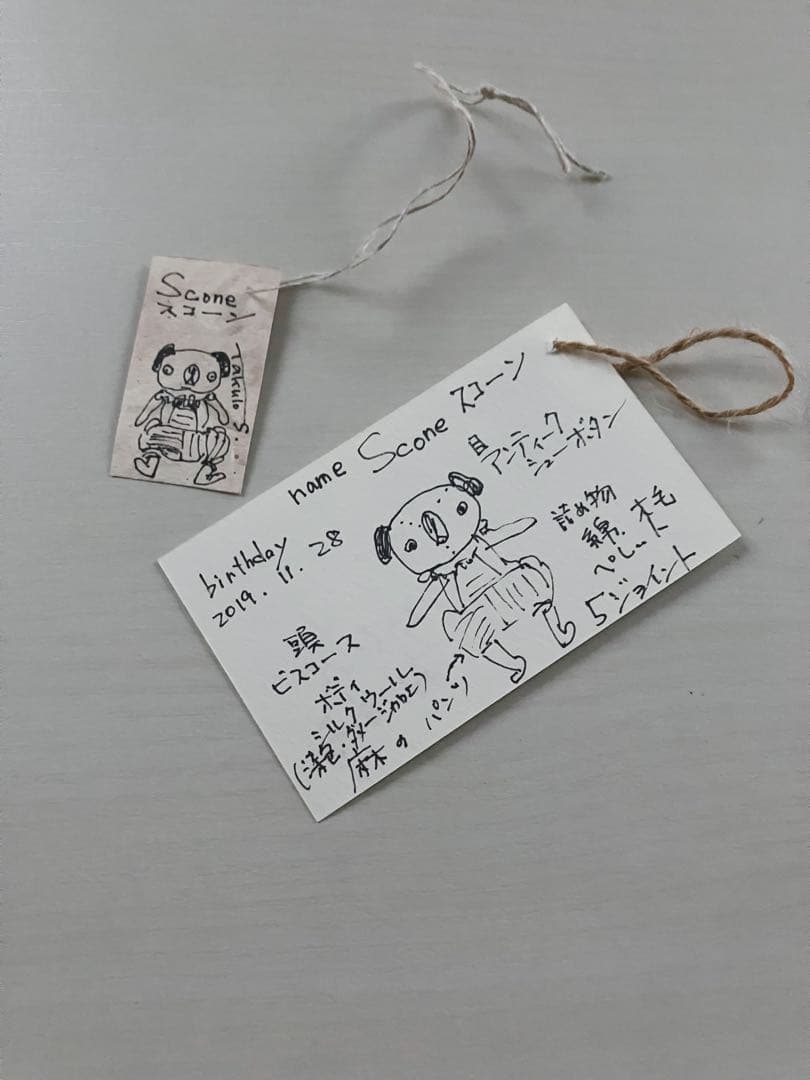 Scone
スコーン
Takulo S.
name Scone スコーン
birthday
2019. 11. 28
目 アンティーク
シューボタン
詰め物
綿、木毛
ペレット
5ジョイント
頭
ビスコース
ボディ
シルクウール
(染色・ダメージ加工)
麻のパンツ